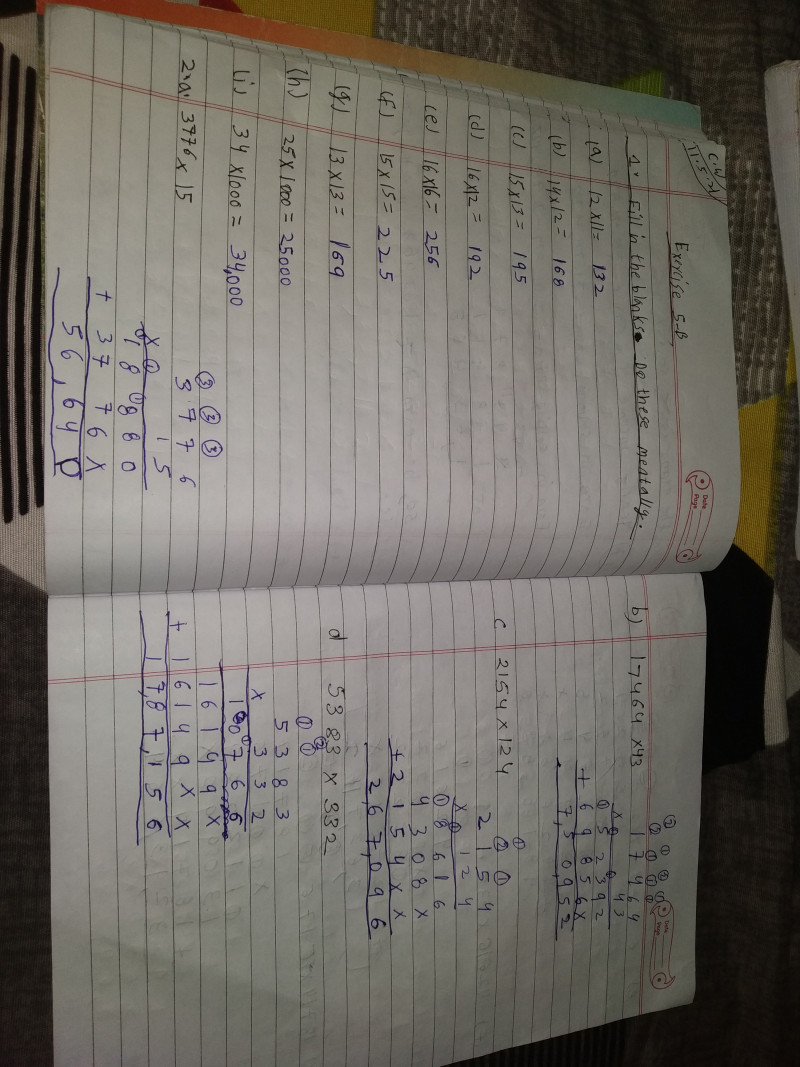 C.W
11.5.21
Exercise 5-B
Date
Page
1. Fill in the blanks. Do these mentally.
(a) 12 x 11 = 132
(b) 14 x 12 = 168
(c) 15 x 13 = 195
(d) 16 x 12 = 192
(e) 16 x 16 = 256
(f) 15 x 15 = 225
(g) 13 x 13 = 169
(h) 25 x 1000 = 25000
(i) 34 x 1000 = 34,000
2. a. 3776 x 15
3 3 3
3 7 7 6
x 1 5
1 8 8 8 0
+ 3 7 7 6 x
5 6 , 6 4 0
Date
Page
b) 17464 x 43
1 7 4 6 4
x 4 3
5 2 3 9 2
+ 6 9 8 5 6 x
7,5 0,9 5 2
c 2154 x 124
2 1 5 4
x 1 2 4
8 6 1 6
4 3 0 8 x
+ 2 1 5 4 x x
2,6 7,0 9 6
d 5383 x 332
5 3 8 3
x 3 3 2
1 0 7 6 6
1 6 1 4 9 x
+ 1 6 1 4 9 x x
1 7,8 7,1 5 6